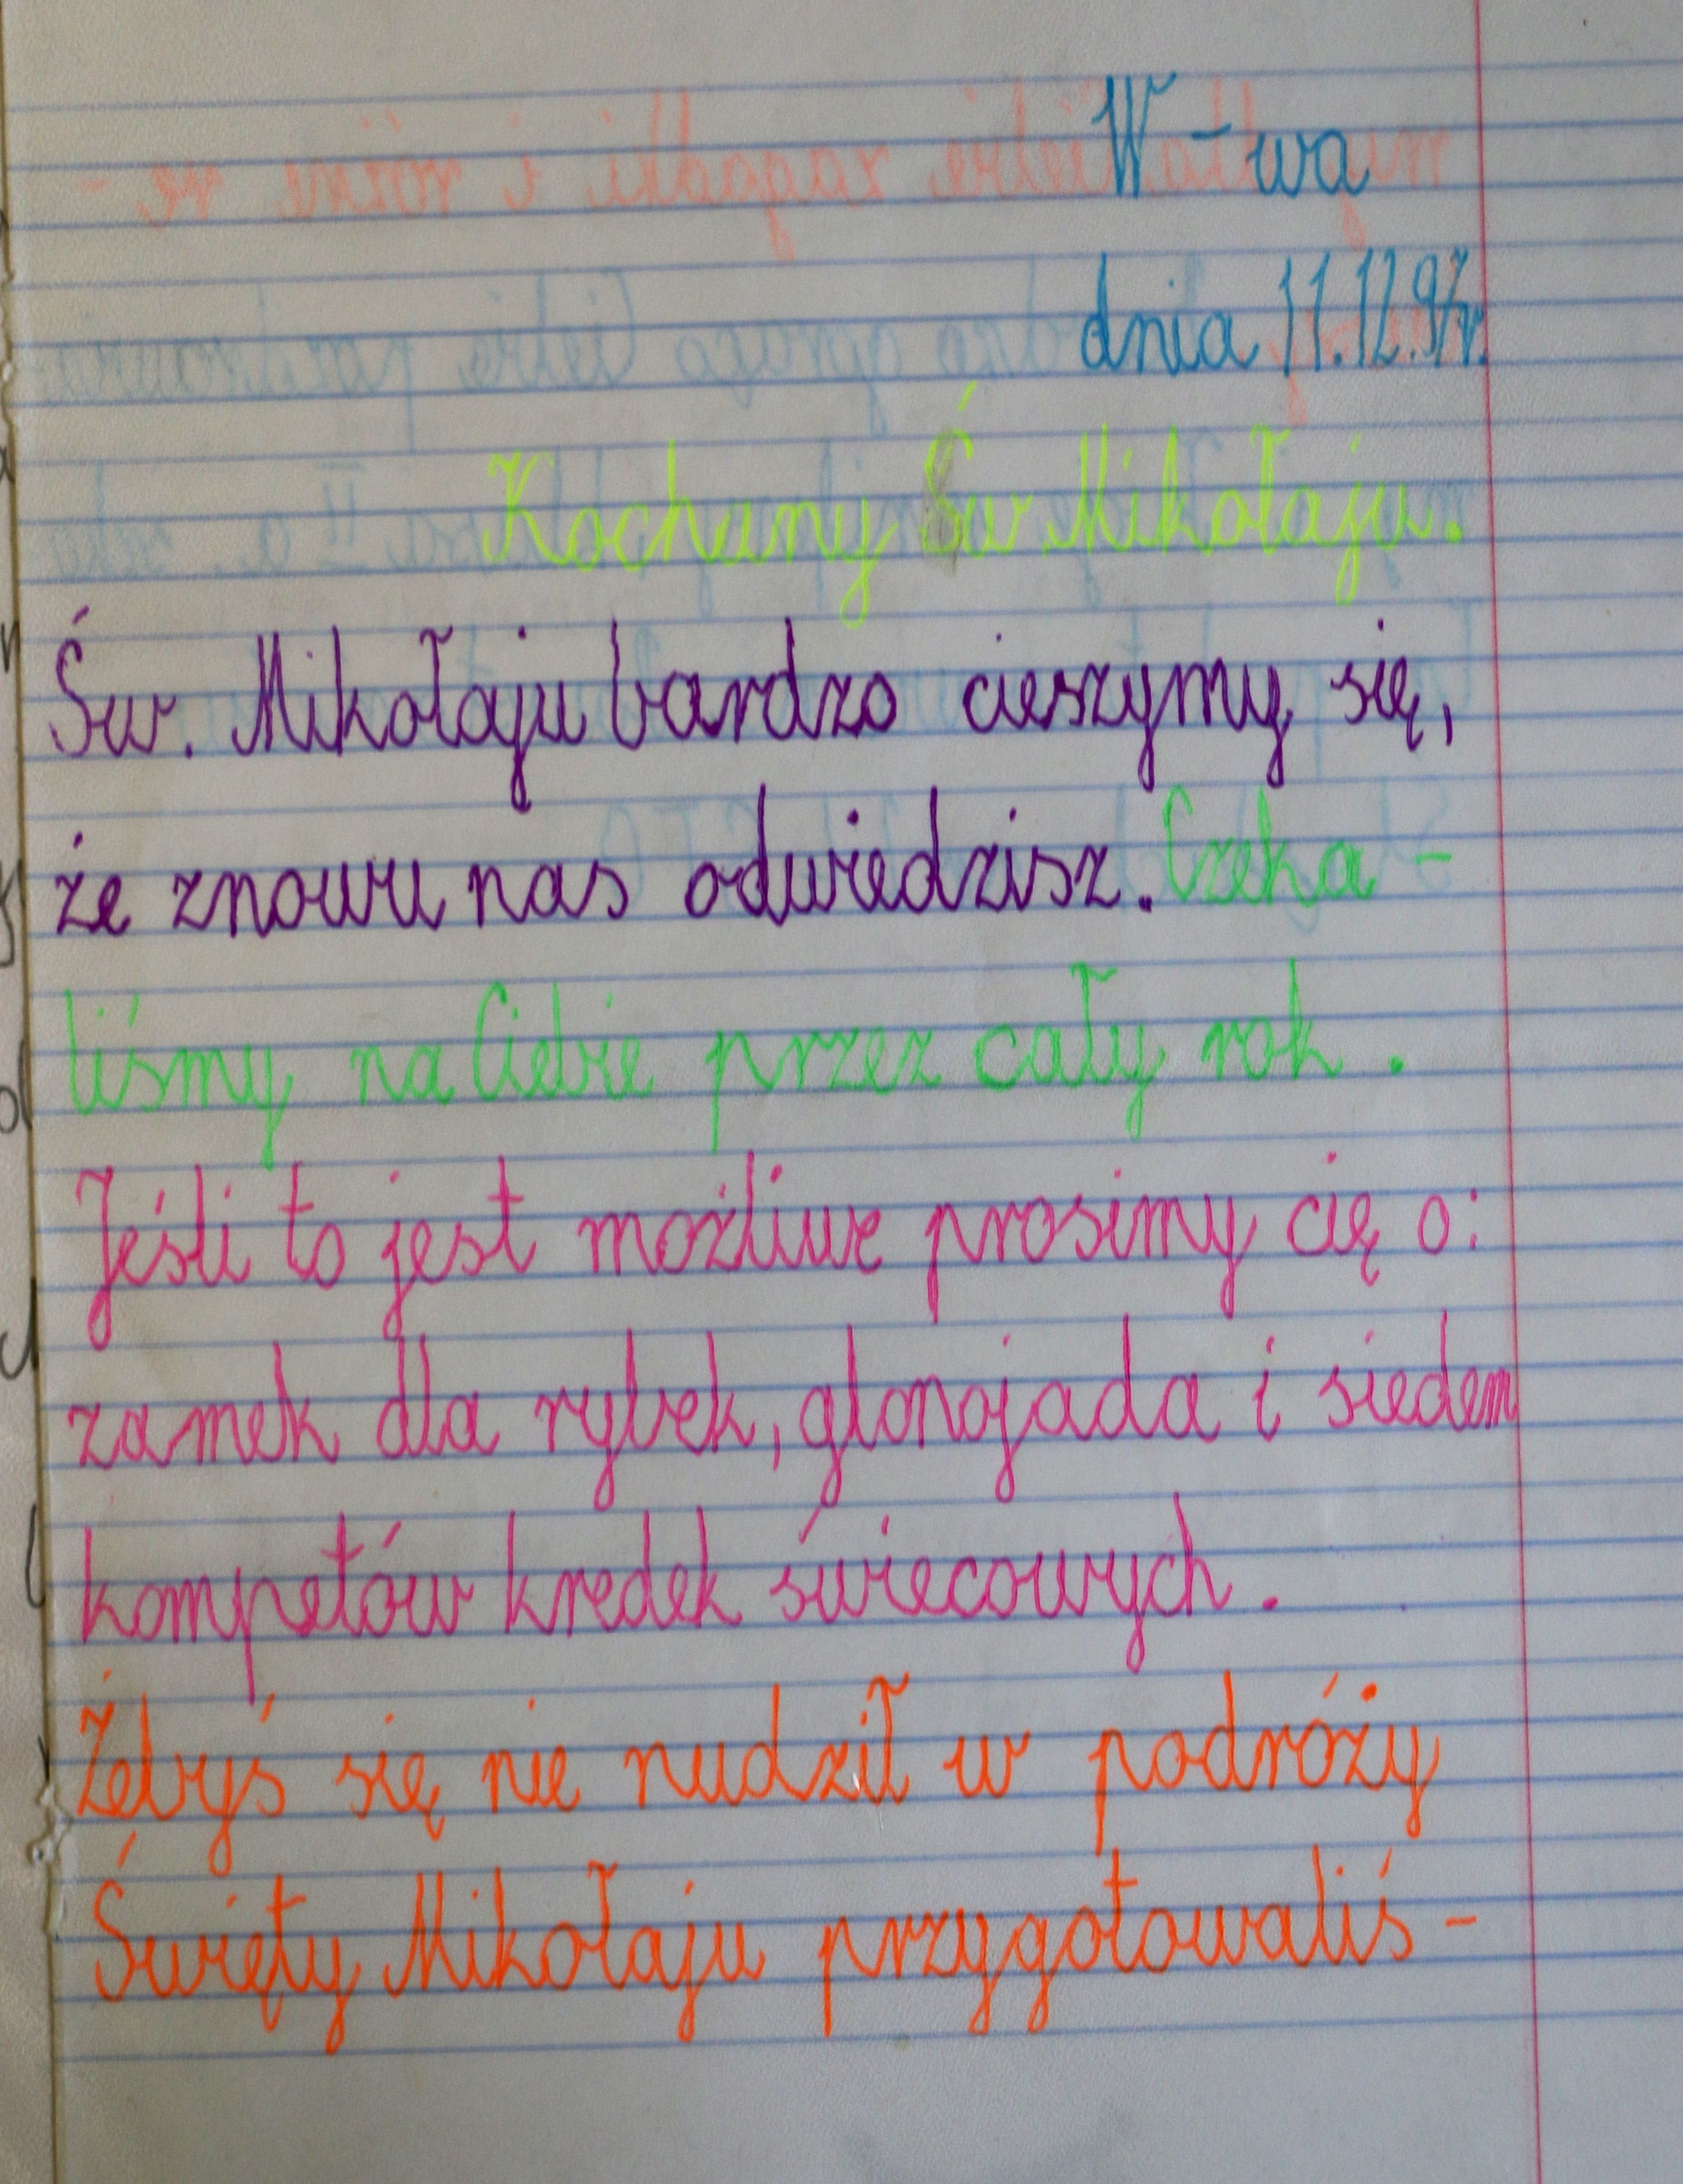 W-wa
dnia 11.12.97r.
Kochany Św Mikołaju.
Św. Mikołaju bardzo cieszymy się,
że znowu nas odwiedzisz. Czeka -
liśmy na Ciebie przez cały rok.
Jeśli to jest możliwe prosimy cię o:
zamek dla rybek, glonojada i siedem
kompetów kredek świecowych.
Żebyś się nie nudził w podróży
Święty Mikołaju przygotowaliś -